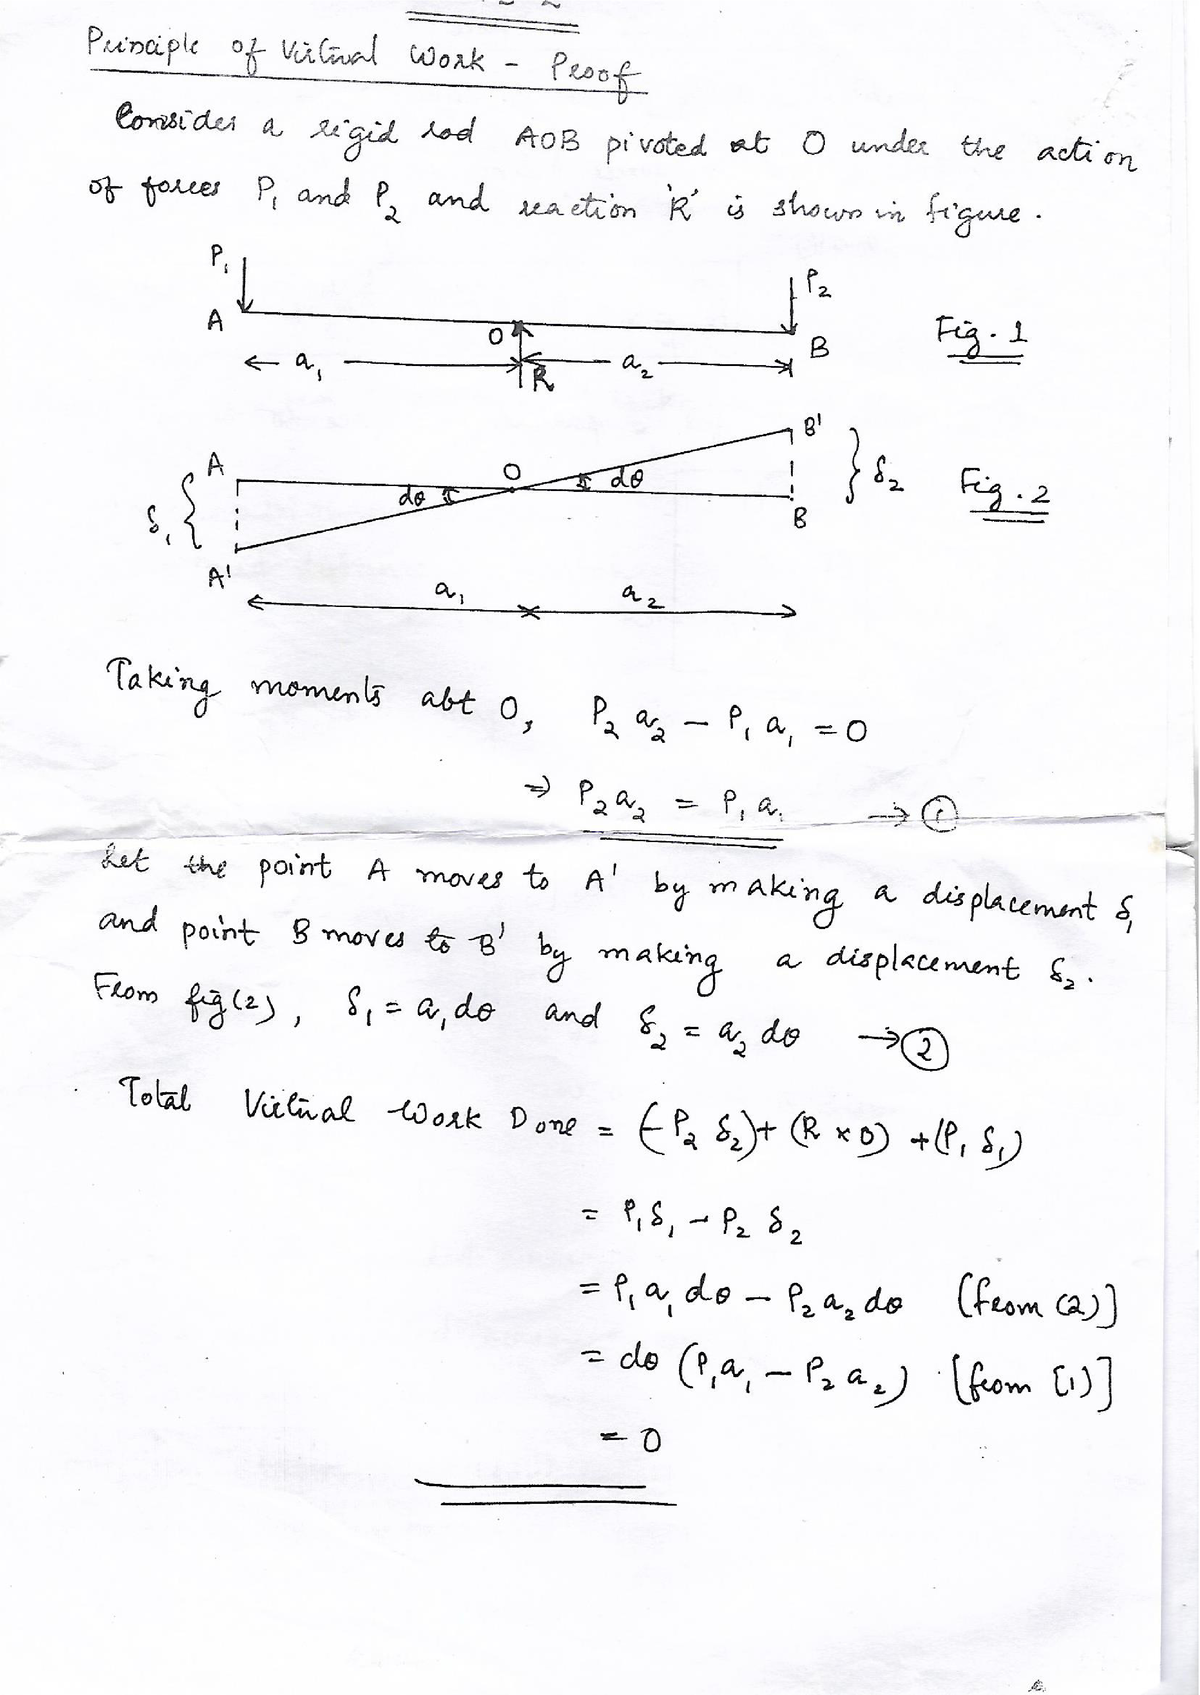 Principle of Virtual Work - Proof
Consider a rigid rod AOB pivoted at O under the action
of forces P₁ and P₂ and reaction 'R' is shown in figure.
P₁
P₂
A
O
B
Fig. 1
a₁
R
a₂
B'
A
O
dθ
dθ
δ₂
Fig. 2
δ₁
B
A'
a₁
a₂
Taking moments abt O, P₂ a₂ - P₁ a₁ = 0
⇒ P₂a₂ = P₁ a₁ → ①
Let the point A moves to A' by making a displacement δ₁
and point B moves to B' by making a displacement δ₂.
From fig(2), δ₁ = a₁dθ and δ₂ = a₂ dθ → ②
Total Virtual Work Done = (-P₂ δ₂) + (R × 0) + (P₁ δ₁)
= P₁δ₁ - P₂ δ₂
= P₁a₁dθ - P₂a₂dθ [from (2)]
= dθ (P₁a₁ - P₂a₂) [from (1)]
= 0